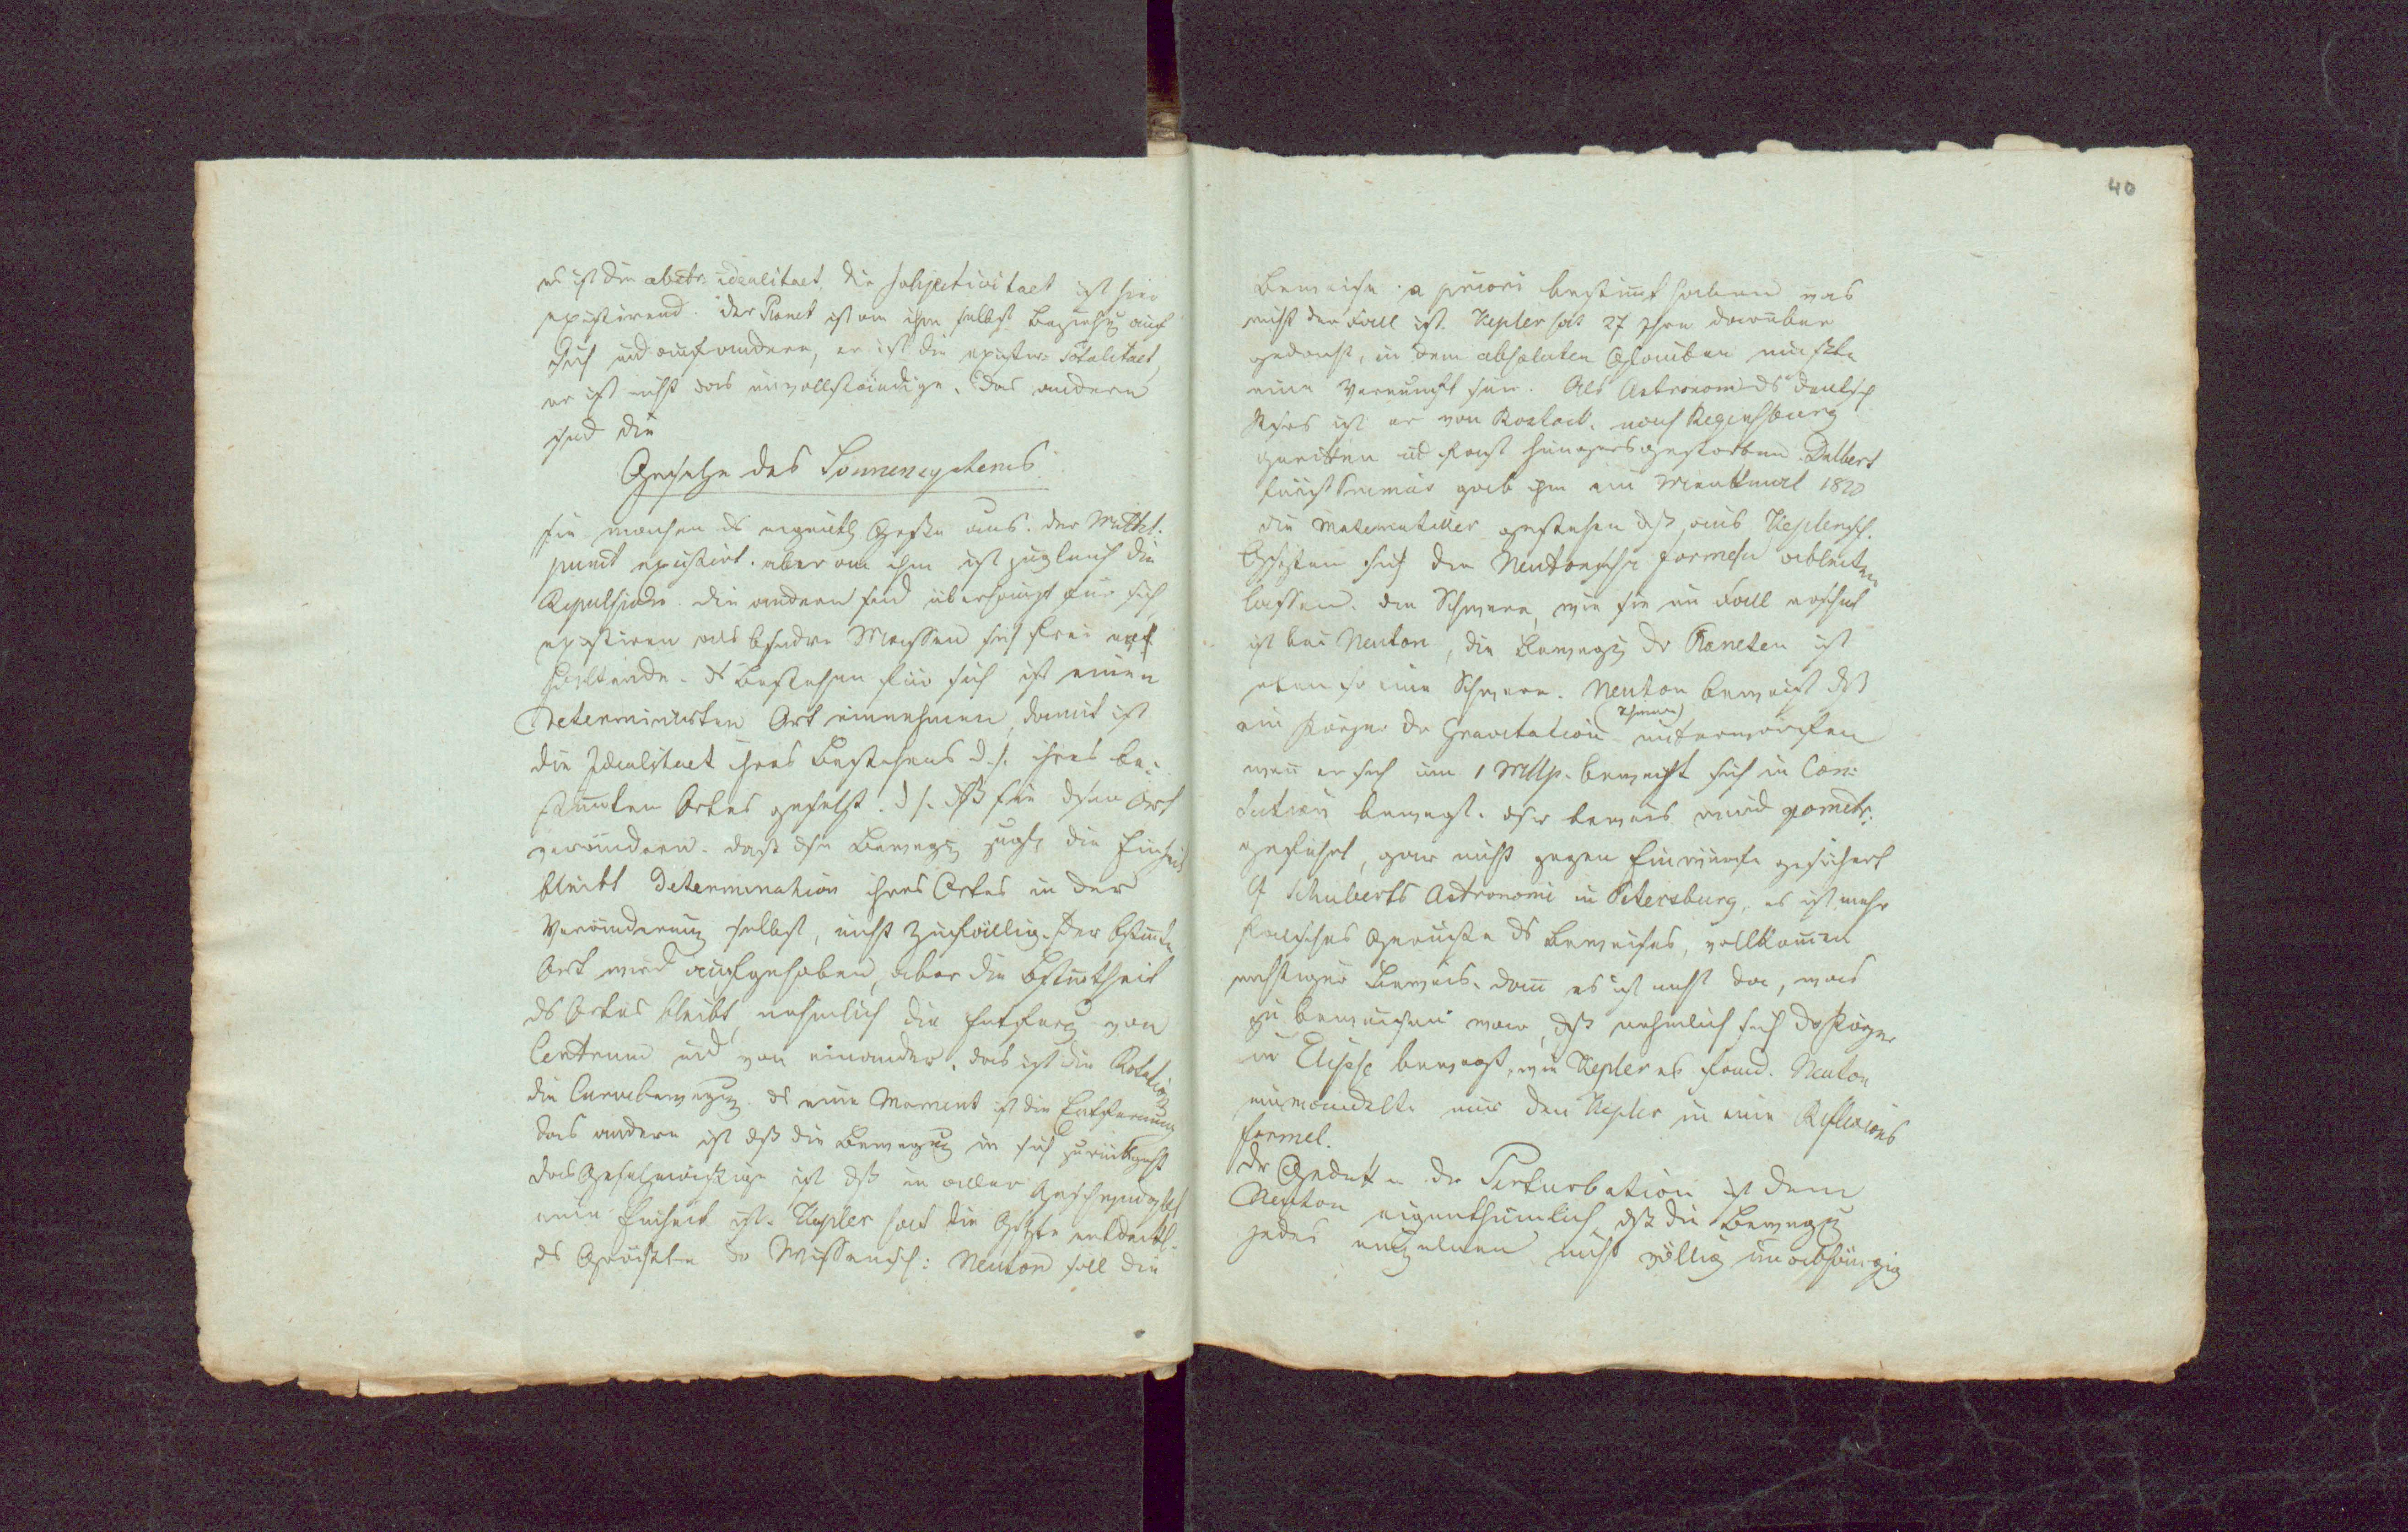 es ist die abstr: idealitaet, die subjectivitaet ist hier
existirend. der Planet ist an ihm selbst Beziehg auf
sich und auf andere, er ist die existir: Totalitaet,
er ist nicht das unvollständige. Das andere
sind die
Gesetze des Sonnensystems.
sie machen ds eigentl Gesetze aus. der Mittel:
punct existirt. aber an ihm ist zugleich die
Repulsion. die andern sind überhaupt für sich
existiren als bsondre Massen sich frei erh
haltende. ds Bestehen für sich ist einen
determinirten Ort einnehmen, damit ist
die Idealitaet ihres Bestehens d.h. ihres be:
stimmten Ortes gesetzt. d.h. dß sie dsen Ort
verändern. daß dse Bewegg zugl die Einheit
bleibt determination ihres Ortes in der
Veränderung selbst, nicht zufällig. Der bstimte
Ort wird aufgehoben, aber die Bstimtheit
ds Ortes bleibt, nehmlich die Entferng von
Centrum und von einander. das ist die Rotation
die Curvebewegung. ds eine Moment ist die Entfernung
das andere ist dß die Bewegung in sich zurückgeht
das Gesetzmässige ist dß in aller Geschwindigkt
eine Einheit ist. Kepler hat die Gstze entdeckt
ds Gröste dr Wissensch: Neuton soll die
40
Beweise a priori bestimt haben was
nicht der Fall ist. Kepler hat 27 Jhre darüber
gedacht, in dem absoluten Glauben müsste
eine Vernunft sein. Als Astronom ds deutsch
Rchs ist er von Rostock nach Regensburg
geritten ud fast hungers gestorben. Dalbert
Fürst Primas gab ihm ein Menkmal 1820
die Matematiker gestehen dß aus Keplersch.
Gsetzen sich die Neutonschn formeln ableiten
lassen. die Schwere, wie sie im Fall erscheint
ist bei Neuton, die Bewegg dr Planeten ist
eben so eine Schwere. Neuton beweist dß
(Schwere)
ein Körper dr Gravitation unterworfen
wenn er sich um 1 Mttlp. bewegt sich in
bewegt. dsr beweis wird geometr:
geführt, gar nicht gegen Einwürfe gesichert
Schuberts Astronomie in Petersburg, es ist mehr
falsches Gerüste ds Beweises, vollkomen
Beweis. denn es ist nicht da, was
zu beweisen war, dß nehmlich sich dr Körper
in Elipse bewegt, wie Kepler es fand. Neuton
umwandelte nur den Kepler in eine Reflexions
formel.
dr Gedanke dr Perturbation ist dem
Neuton eigenthümlich, dß die Bewegg
jedes einzelnen nicht völlig unabhängig